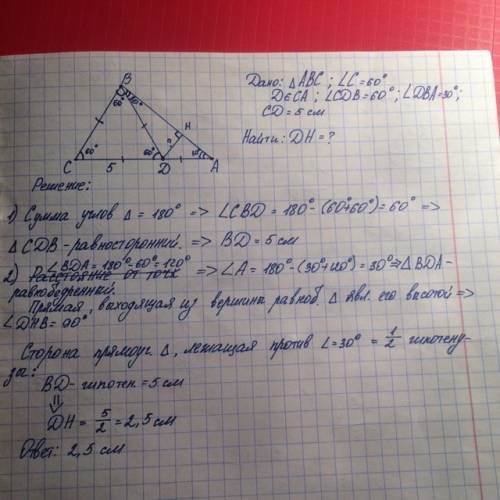 Дано: △ABC ; ∠C=60°
D∈CA ; ∠CDB=60° ; ∠DBA=30° ;
CD=5 см
Найти: DH=?
B
60° 30°
H
?
C 60° 5 60° D A
Решение:
1) Сумма углов △ = 180° => ∠CBD = 180°-(60°+60°)=60° =>
△CDB - равносторонний. => BD=5 см
∠BDA=180°-60°=120°
2) Расстояние от точк => ∠A = 180°-(30°+120°)=30° => △BDA-
равнобедренный.
Прямая, выходящая из вершины равноб. △ явл. его высотой =>
∠DHB=90°
Сторона прямоуг. △, лежащая против ∠=30° = 1/2 гипотену-
зы:
BD - гипотен. = 5 см
⇓
DH = 5/2 = 2,5 см
Ответ: 2,5 см